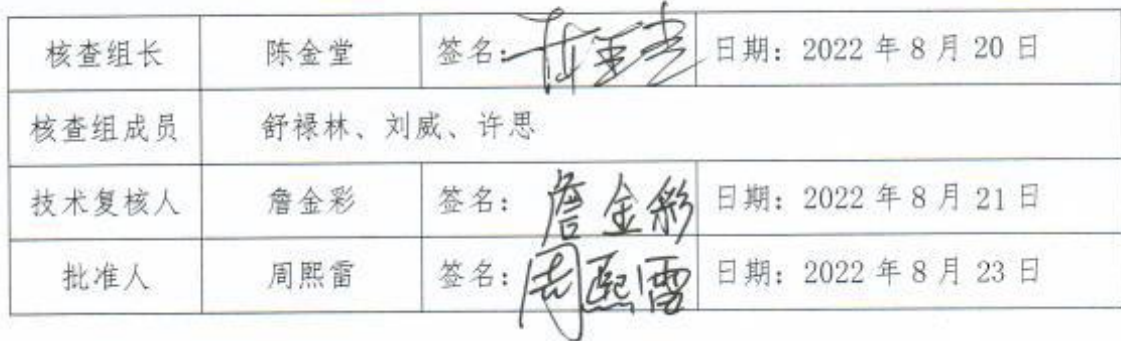 核查组长 陈金堂 签名：陈金堂 日期：2022 年 8 月 20 日
核查组成员 舒禄林、刘威、许思
技术复核人 詹金彩 签名：詹金彩 日期：2022 年 8 月 21 日
批准人 周熙雷 签名：周熙雷 日期：2022 年 8 月 23 日